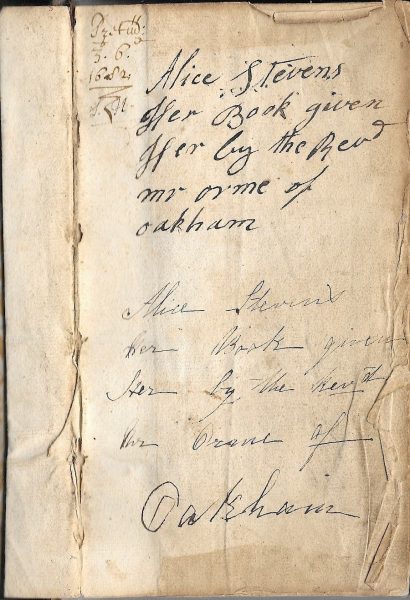 3. 6.
1682.
Alice Stevens
Her Book given
Her by the Revd
mr orme of
oakham
Alice Stevens
her Book given
Her by the Revd
mr Orme of
Oakham